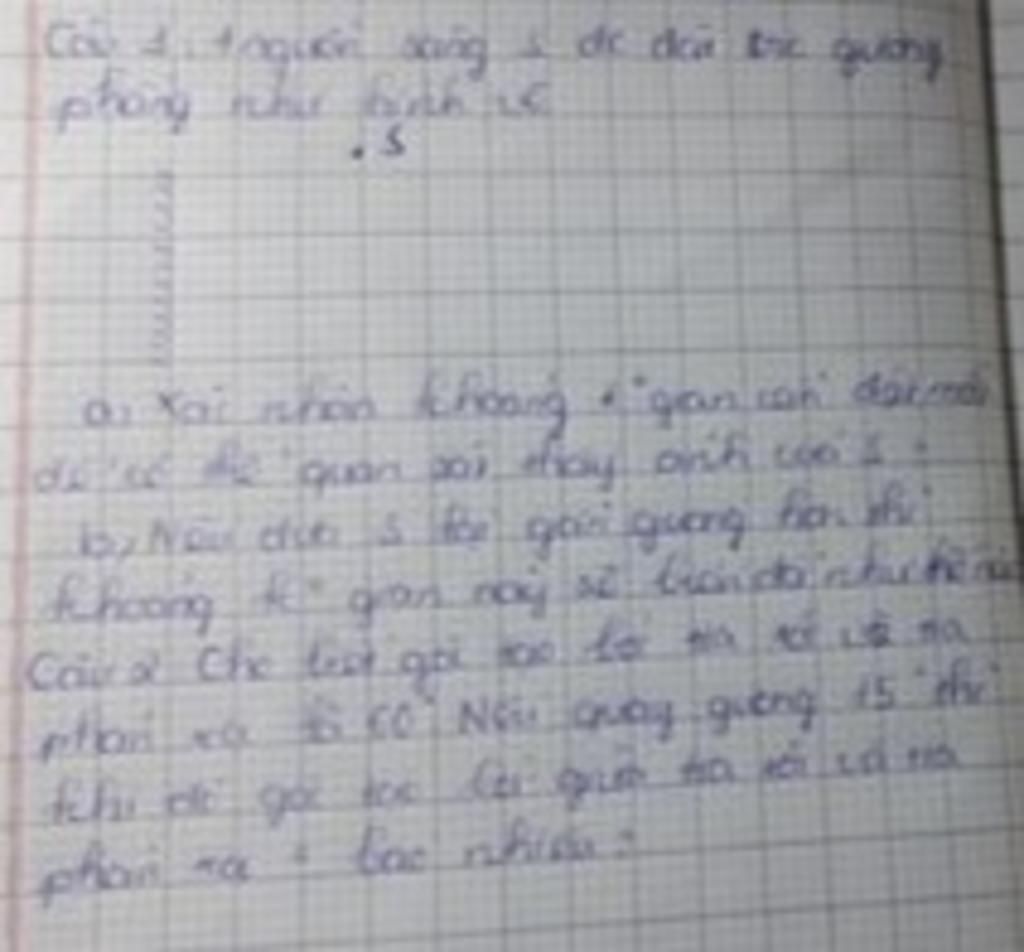 Câu 1. 1 nguồn sáng S đc đặt trc gương
phẳng như hình vẽ
. S
a, Xác nhận khoảng gian cần đặt mắt
để có thể quan sát thấy ảnh của S
b, Nếu đưa S lại gần gương hơn thì
khoảng k gian này sẽ biến đổi như thế nào
Câu 2 Cho biết góc tạo bởi tia tới và tia
phản xạ là 60° Nếu quay gương 15° thì
khi đó góc tạo bởi giữa tia tới và tia
phản xạ = bao nhiêu?